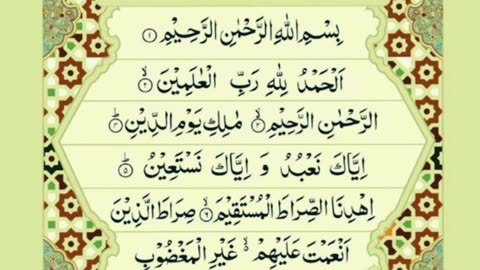 بِسْمِ اللهِ الرَّحْمٰنِ الرَّحِيْمِ ۝١
اَلْحَمْدُ لِلّٰهِ رَبِّ الْعٰلَمِيْنَ ۙ۝٢
الرَّحْمٰنِ الرَّحِيْمِ ۙ۝٣ مٰلِكِ يَوْمِ الدِّيْنِ ؕ۝٤
اِيَّاكَ نَعْبُدُ وَ اِيَّاكَ نَسْتَعِيْنُ ؕ۝٥
اِهْدِنَا الصِّرَاطَ الْمُسْتَقِيْمَ ۙ۝٦ صِرَاطَ الَّذِيْنَ
اَنْعَمْتَ عَلَيْهِمْ ۙ۬ غَيْرِ الْمَغْضُوْبِ